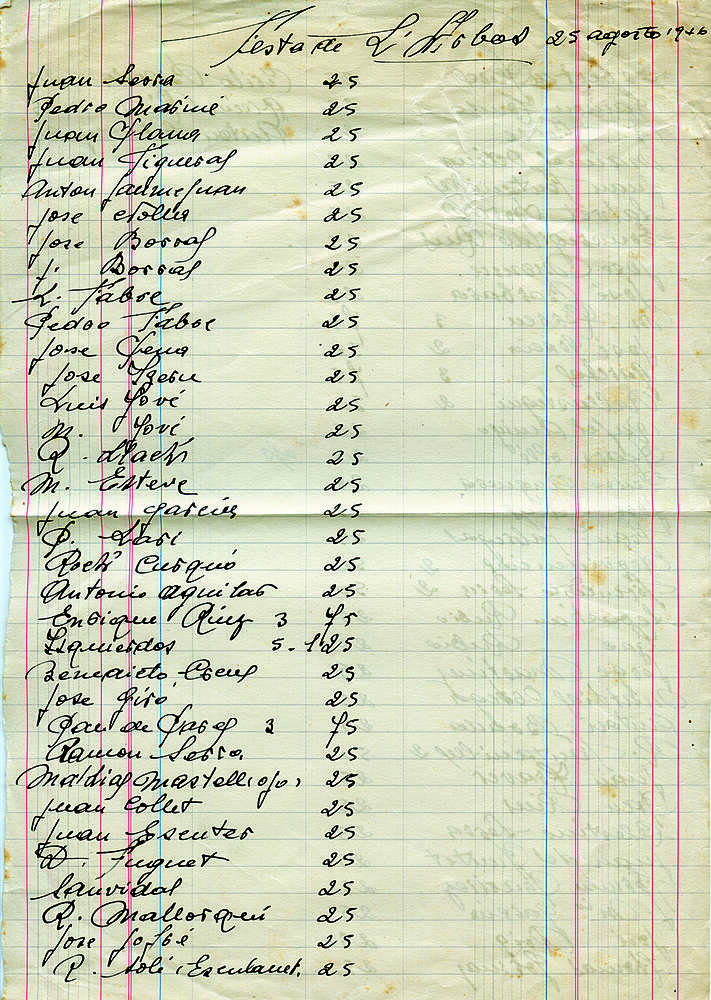 Fiesta de L'Arbos 25 agosto 1946
Juan Serra 25
Pedro Mariné 25
Juan Plana 25
Juan Figueras 25
Anton Jaume Juan 25
Jose 25
Jose Borras 25
J. Borras 25
L. Fabre 25
Pedro Fabre 25
Jose 25
Jose 25
Luis Jové 25
M. Jové 25
R. 25
M. Esteve 25
Juan Garcia 25
25
Rock Cusquó 25
Antonio Aguilar 25
Enrique 3 75
Izquierdos 5 - 125
Benedicto Creus 25
Jose Giró 25
Pau de 3 75
Ramon Serra 25
Matias 25
Juan Collet 25
Juan Escuter 25
D. Fuguet 25
Sanvidal 25
R. Mallorqui 25
Jose Jofré 25
R. Solé 25